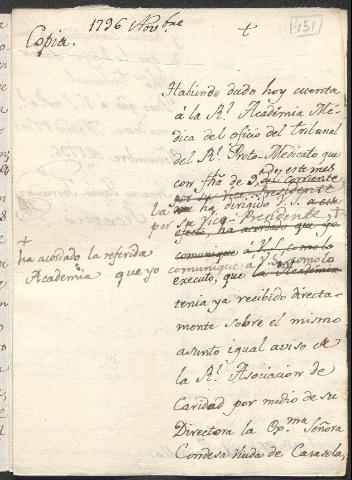 1796 Nov.bre
Copia.
+
451
Habiendo dado hoy cuenta
á la Rl. Académia Mé-
dica del oficio del Tribunal
del Rl. Proto-Medicato que
con fha de 9 de este mes
del Corriente
por su Vice-Presidente
la ha dirigido V.S. a este
por su Vice-Presidente
efecto, ha acordado que yo
+
ha acordado la referida
Academia que yo comunique á V.S. como lo
executo, que la Academia
tenia ya recibido directa-
mente sobre el mismo
asunto igual aviso de
la Rl. Asociacion de
Caridad por medio de su
Directora la Exma. Señora
Condesa viuda de Casasola,